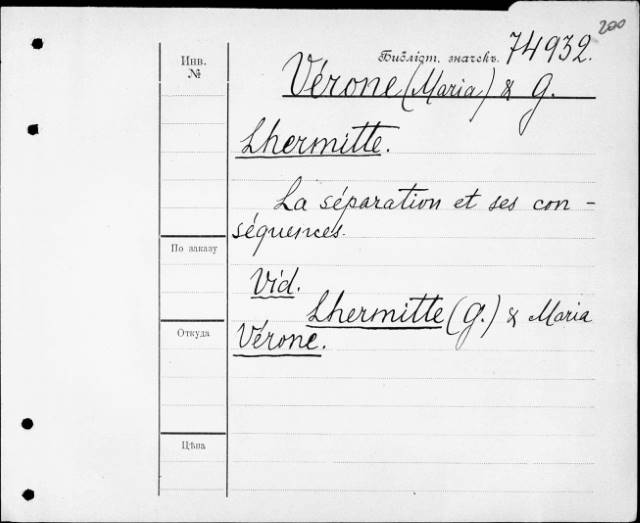 200
Инв. №
Библіот. значекъ. 74932.
Vérone (Maria) & G.
Lhermitte.
La séparation et ses con-
séquences.
По заказу
Vid.
Lhermitte (G.) & Maria
Откуда
Vérone.
Цѣна